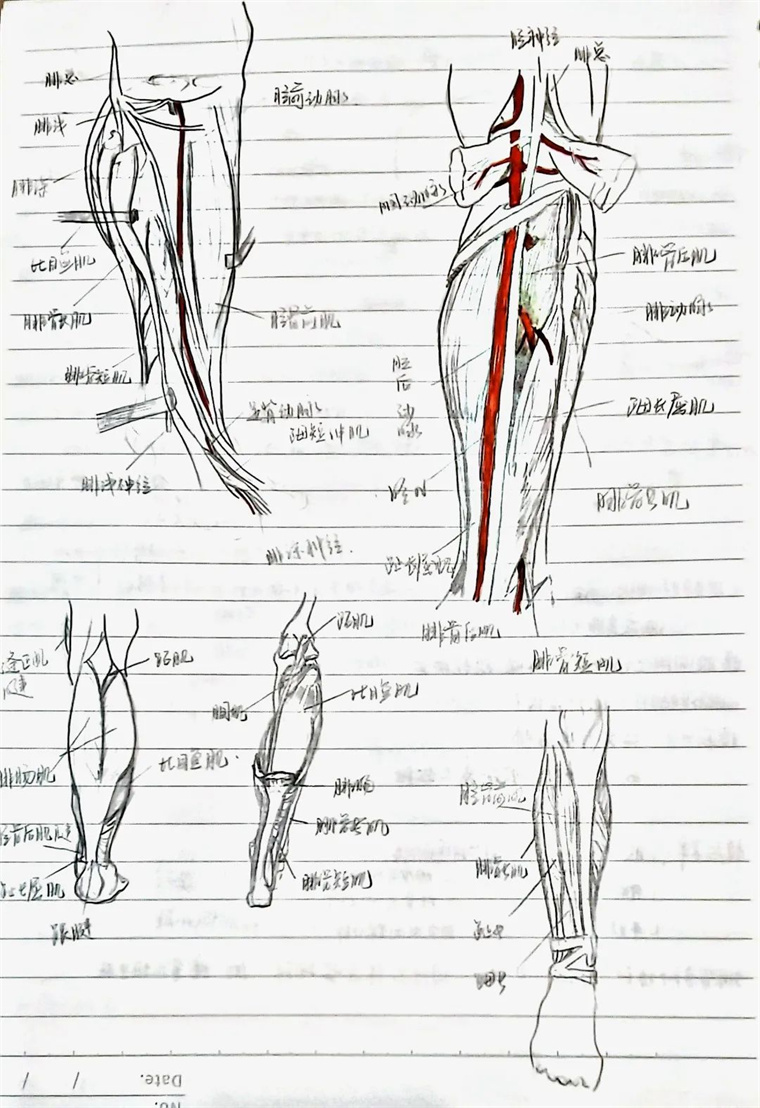 腓总
腓浅
腓深
比目鱼肌
腓骨长肌
腓骨短肌
腓浅神经
胫前动脉
胫骨前肌
足背动脉
𧿹短伸肌
腓深神经
胫神经
腓总
腘动脉
胫后动脉
胫N
腓骨后肌
腓动脉
𧿹长屈肌
腓骨长肌
腓骨后肌
腓骨短肌
跖肌
腓肠肌
比目鱼肌
跟腱
跖肌
腘肌
比目鱼肌
腓肠
腓骨长肌
腓骨短肌
腓骨长肌
Date.
No.